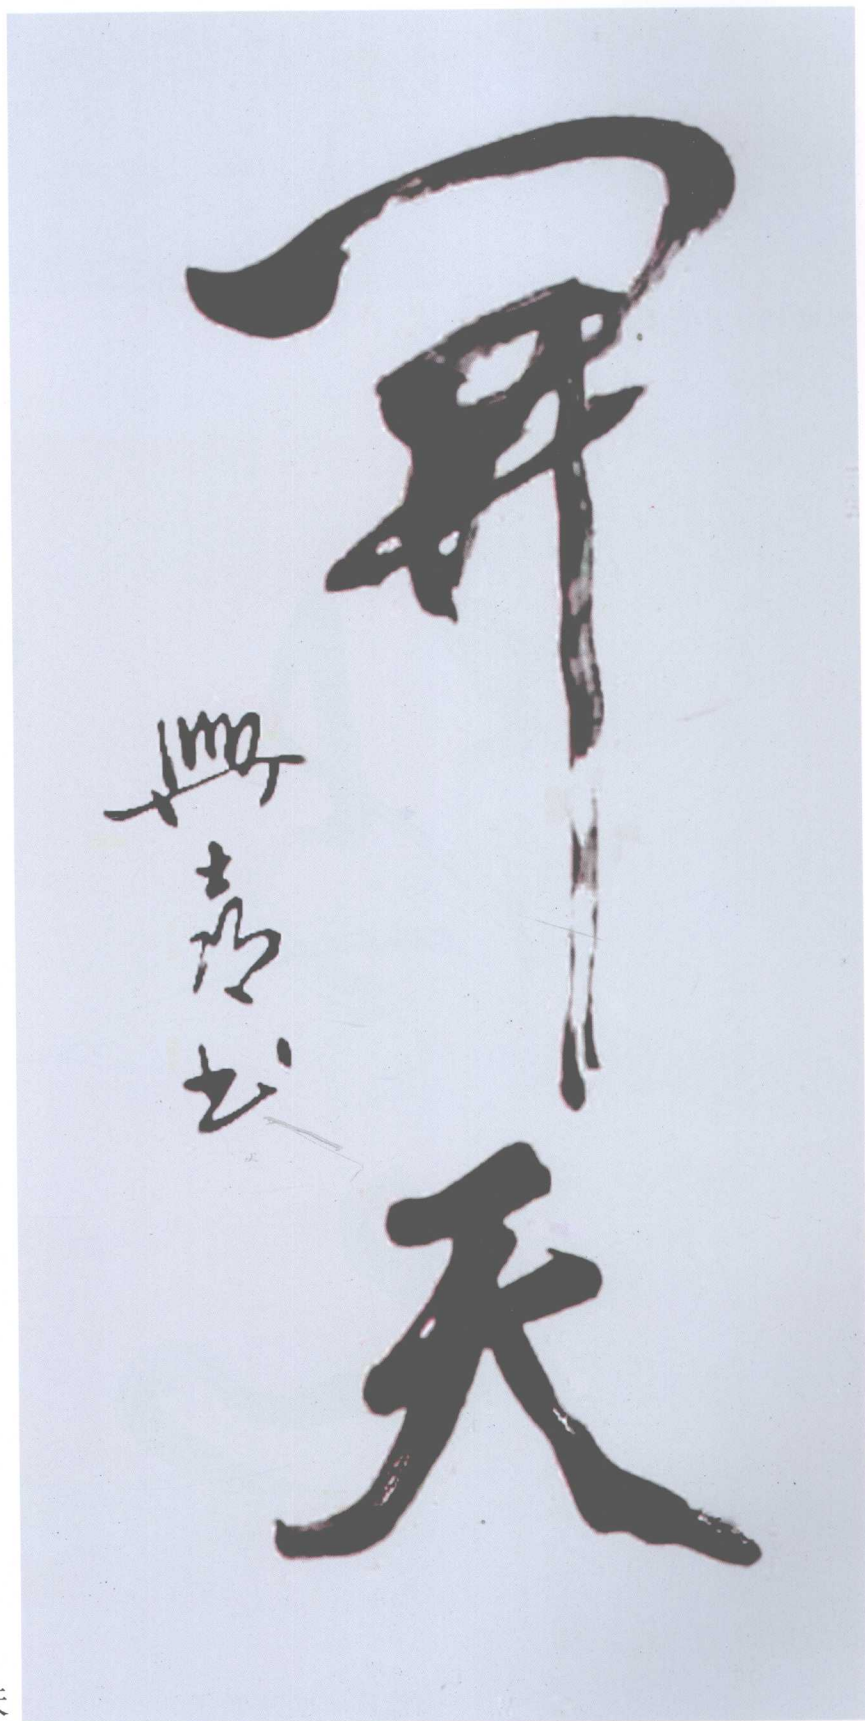 开天
兴嘉书